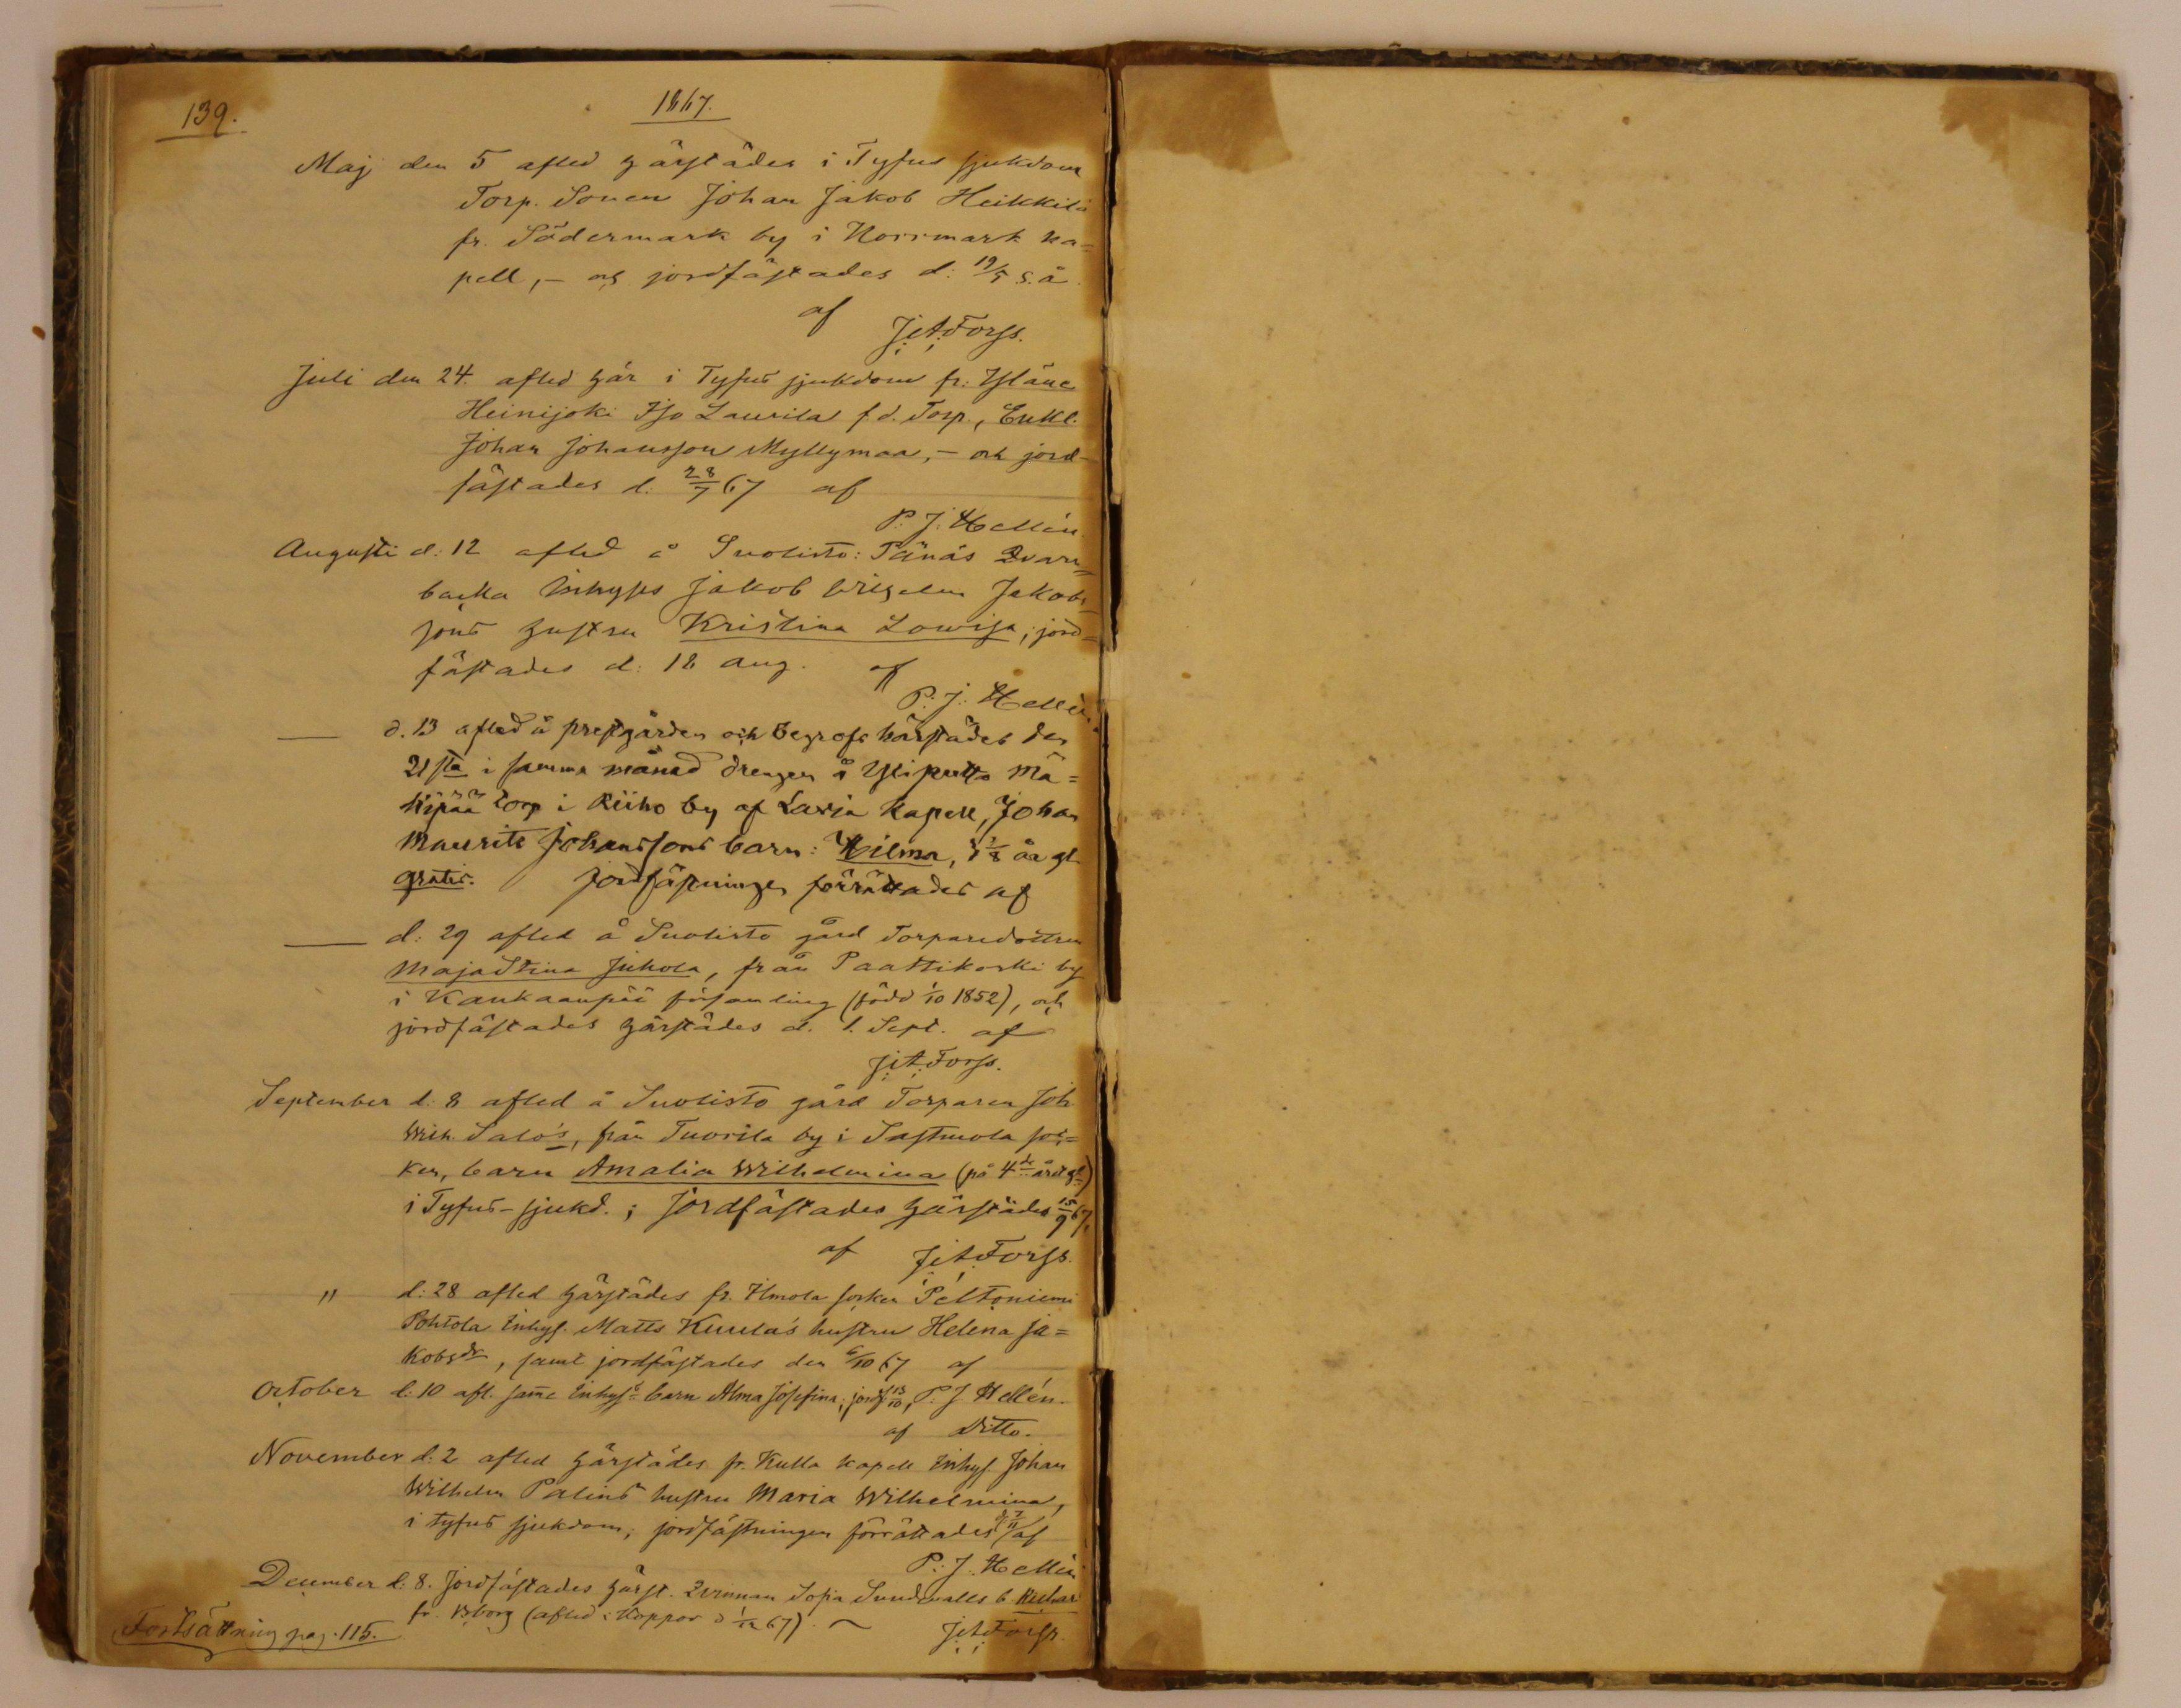 139.
1867.
Maj den 5 afled härstädes i Tyfus sjukdom
Torp. Sonen Johan Jakob Heikkilä
fr. Södermark by i Norrmark ka=
pell, – och jordfästades d: 19/5 s.å.
af
J:A:Forss.
Juli den 24. afled här i Tyfus sjukdom fr. Yläne
Heinijoki Iso Laurila f.d. Torp., Enkl.
Johan Johansson Myllymaa, – och jord-
fästades d. 28/7 67 af
P. J. Hellén.
Augusti d: 12 afled å Suolisto: Tänäs Qvarn=
backa Inhyses Jakob Wilhelm Jakobs=
sons hustru Kristina Lowisa; jord=
fästades d: 18 Aug. af
P. J. Hellén
— d. 13 afled å prestgården och begrofs härstädes den
21sta i samma månad drengen å Yliputto Mä=
kipää torp i Riiho by af Lavia kapell, Johan
Maurits Johanssons barn: Hilma, år gl.
gratis. Jordfästningen förrättades af
— d: 29 afled å Suolisto gård Torparedottren
Maja Stina Juhola, från Paattikoski by
i Kankaanpää församling (född 1/10 1852), och
jordfästades härstädes d. 1. Sept. af
J:A:Forss.
September d: 8 afled å Suolisto gård Torparen Joh.
Wilh. Salo's, från Tuorila by i Sastmola soc=
ken, barn Amalia Wilhelmina (på 4de året gl)
i Tyfus-sjukd.; jordfästades härstädes 15/9 67.
af J:A:Forss.
" d: 28 afled härstädes fr. Ilmola socken Peltoniemi
Pohtola Inhys. Matts Kuula's hustru Helena Ja=
kobsdr, samt jordfästades den 6/10 67 af
October d: 10 afl. samme Inhys:s barn Alma Josefina; jordf 13/10, P. J. Hellén.
af Ditto.
November d: 2 afled härstädes fr. Kulla kapell Inhys. Johan
Wilhelm Palins hustru Maria Wilhelmina,
i tyfus sjukdom; jordfästningen förrättades af
P. J. Hellén
December d: 8. Jordfästades härst. Qvinnan Sofia Sundvalls b.
fr. Bborg (afled i Koppor d 1/12 67). J:A:Forss.
Fortsättning pag. 115.